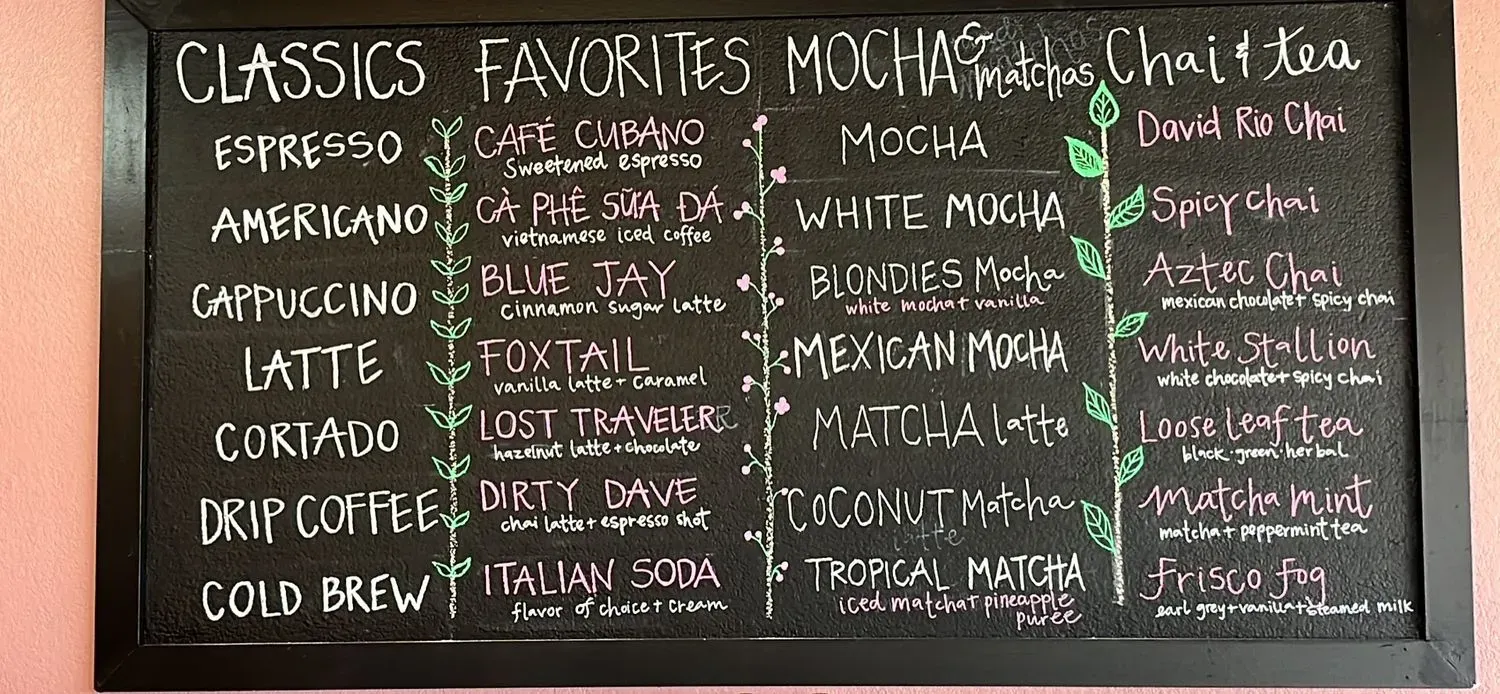 CLASSICS
ESPRESSO
AMERICANO
CAPPUCCINO
LATTE
CORTADO
DRIP COFFEE
COLD BREW
FAVORITES
CAFÉ CUBANO
Sweetened espresso
CÀ PHÊ SỮA ĐÁ
vietnamese iced coffee
BLUE JAY
cinnamon sugar latte
FOXTAIL
vanilla latte + caramel
LOST TRAVELER
hazelnut latte + chocolate
DIRTY DAVE
chai latte + espresso shot
ITALIAN SODA
flavor of choice + cream
MOCHA & matchas
MOCHA
WHITE MOCHA
BLONDIES Mocha
white mocha + vanilla
MEXICAN MOCHA
MATCHA latte
COCONUT Matcha
latte
TROPICAL MATCHA
iced matcha + pineapple
purée
Chai & tea
David Rio Chai
Spicy Chai
Aztec Chai
mexican chocolate + spicy chai
White Stallion
white chocolate + spicy chai
Loose leaf tea
black · green · herbal
Matcha mint
matcha + peppermint tea
frisco fog
earl grey + vanilla + steamed milk